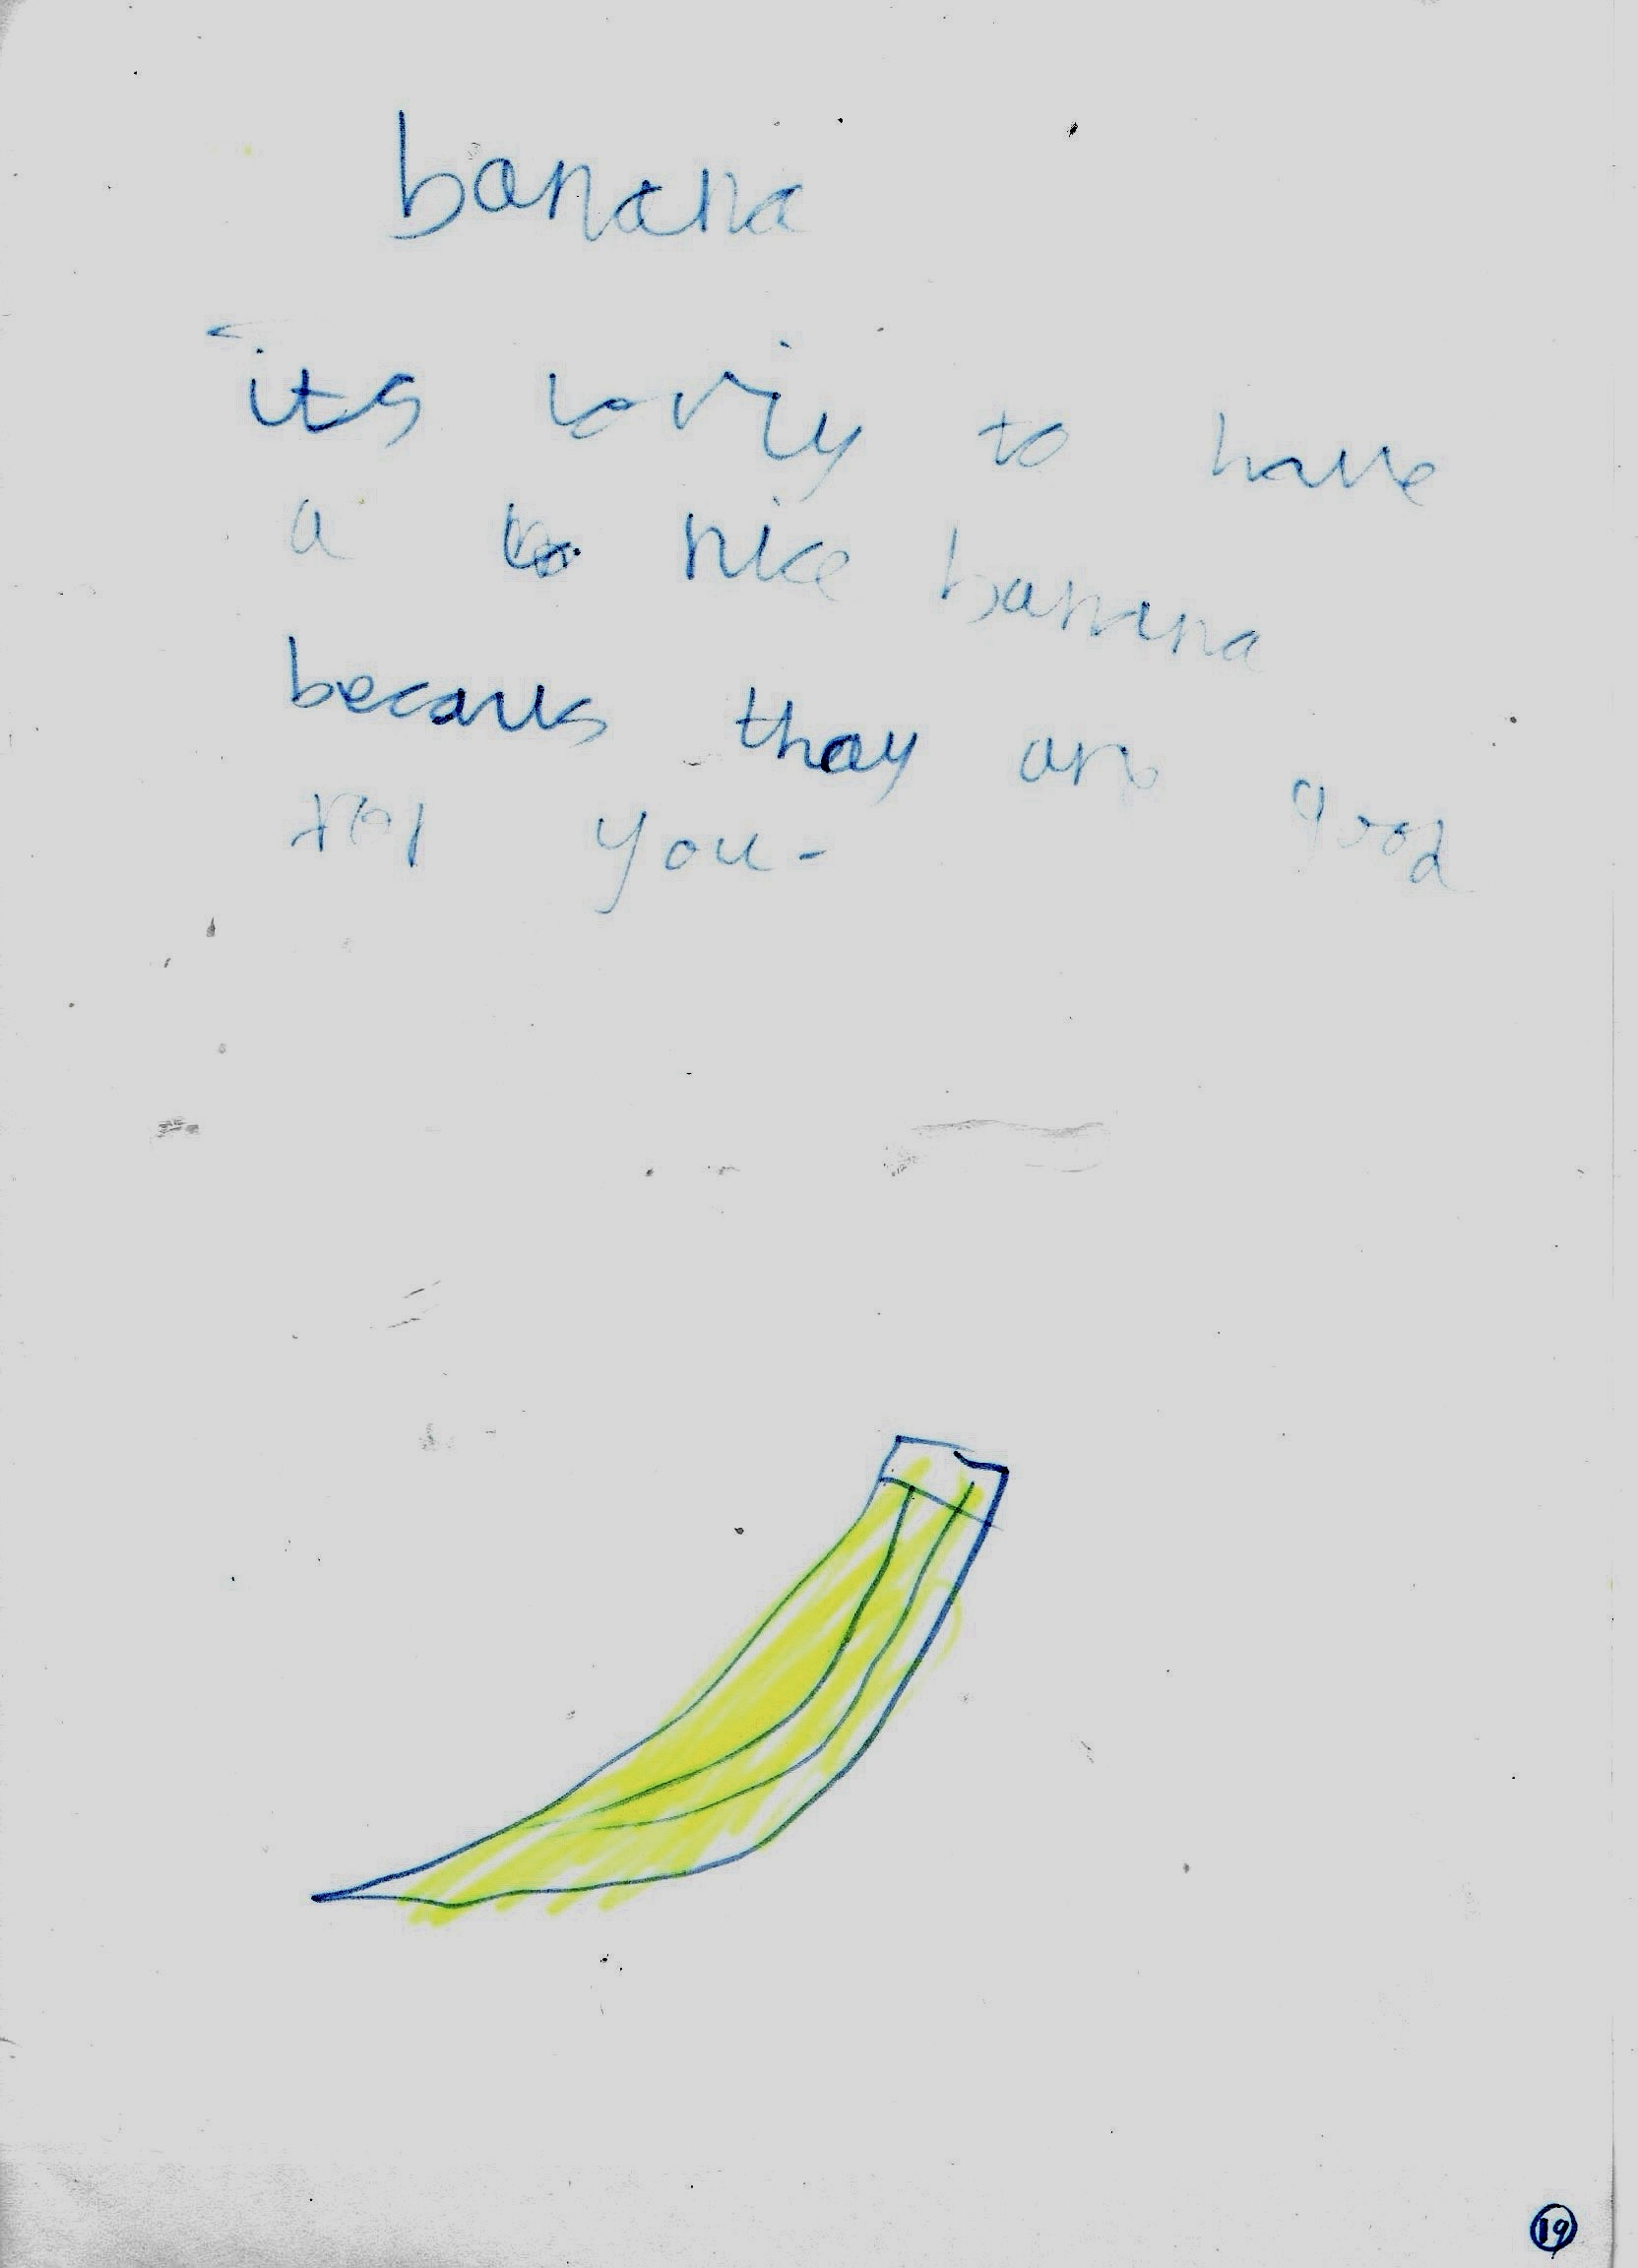 banana
its loviy to have
a nice banana
becaus thay are good
you.
19